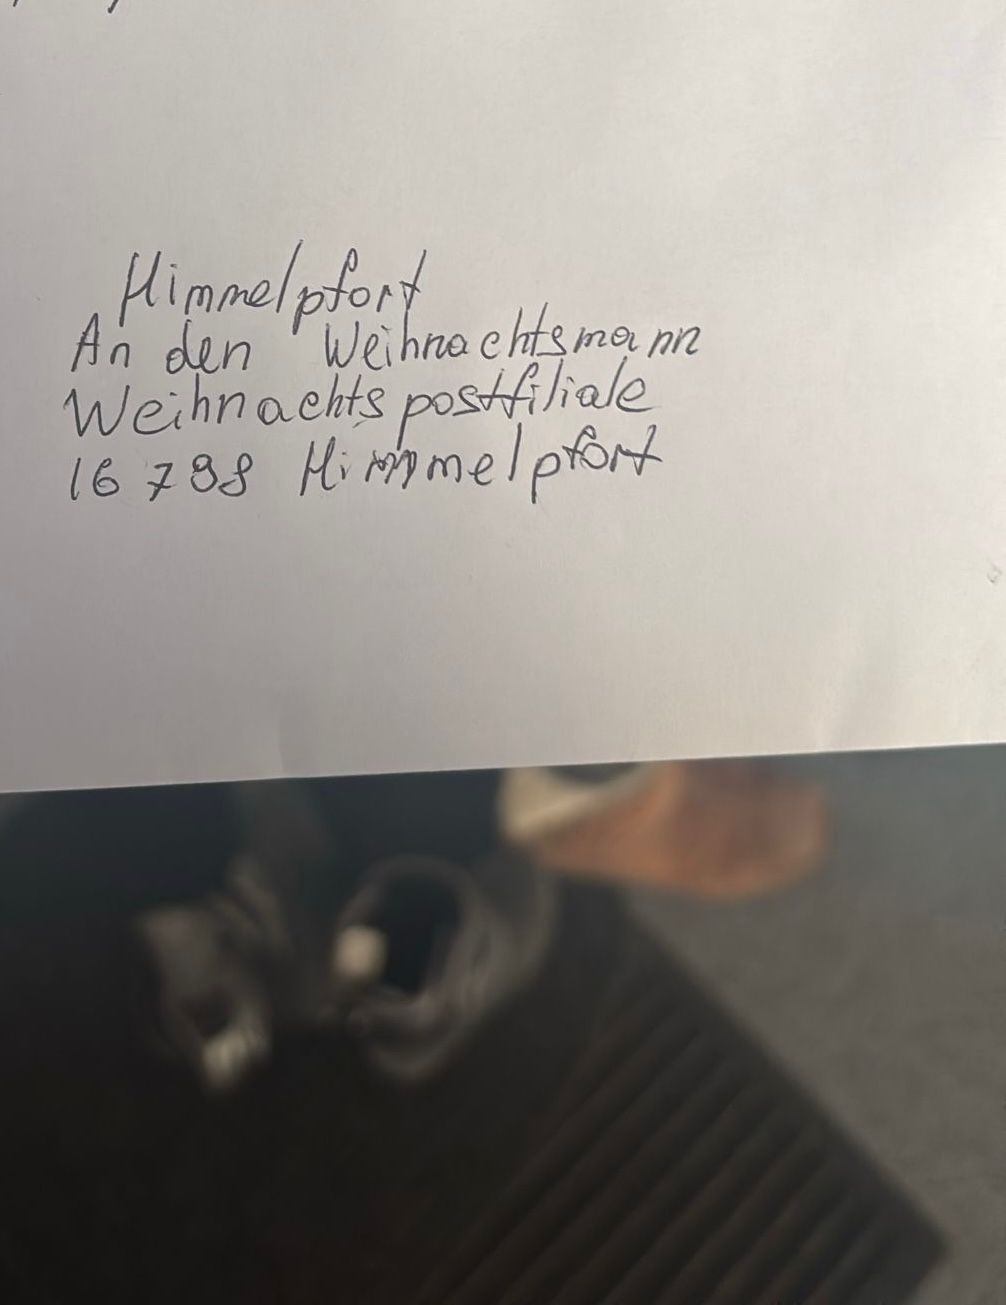 Himmelpfort
An den Weihnachtsmann
Weihnachtspostfiliale
16 798 Himmelpfort